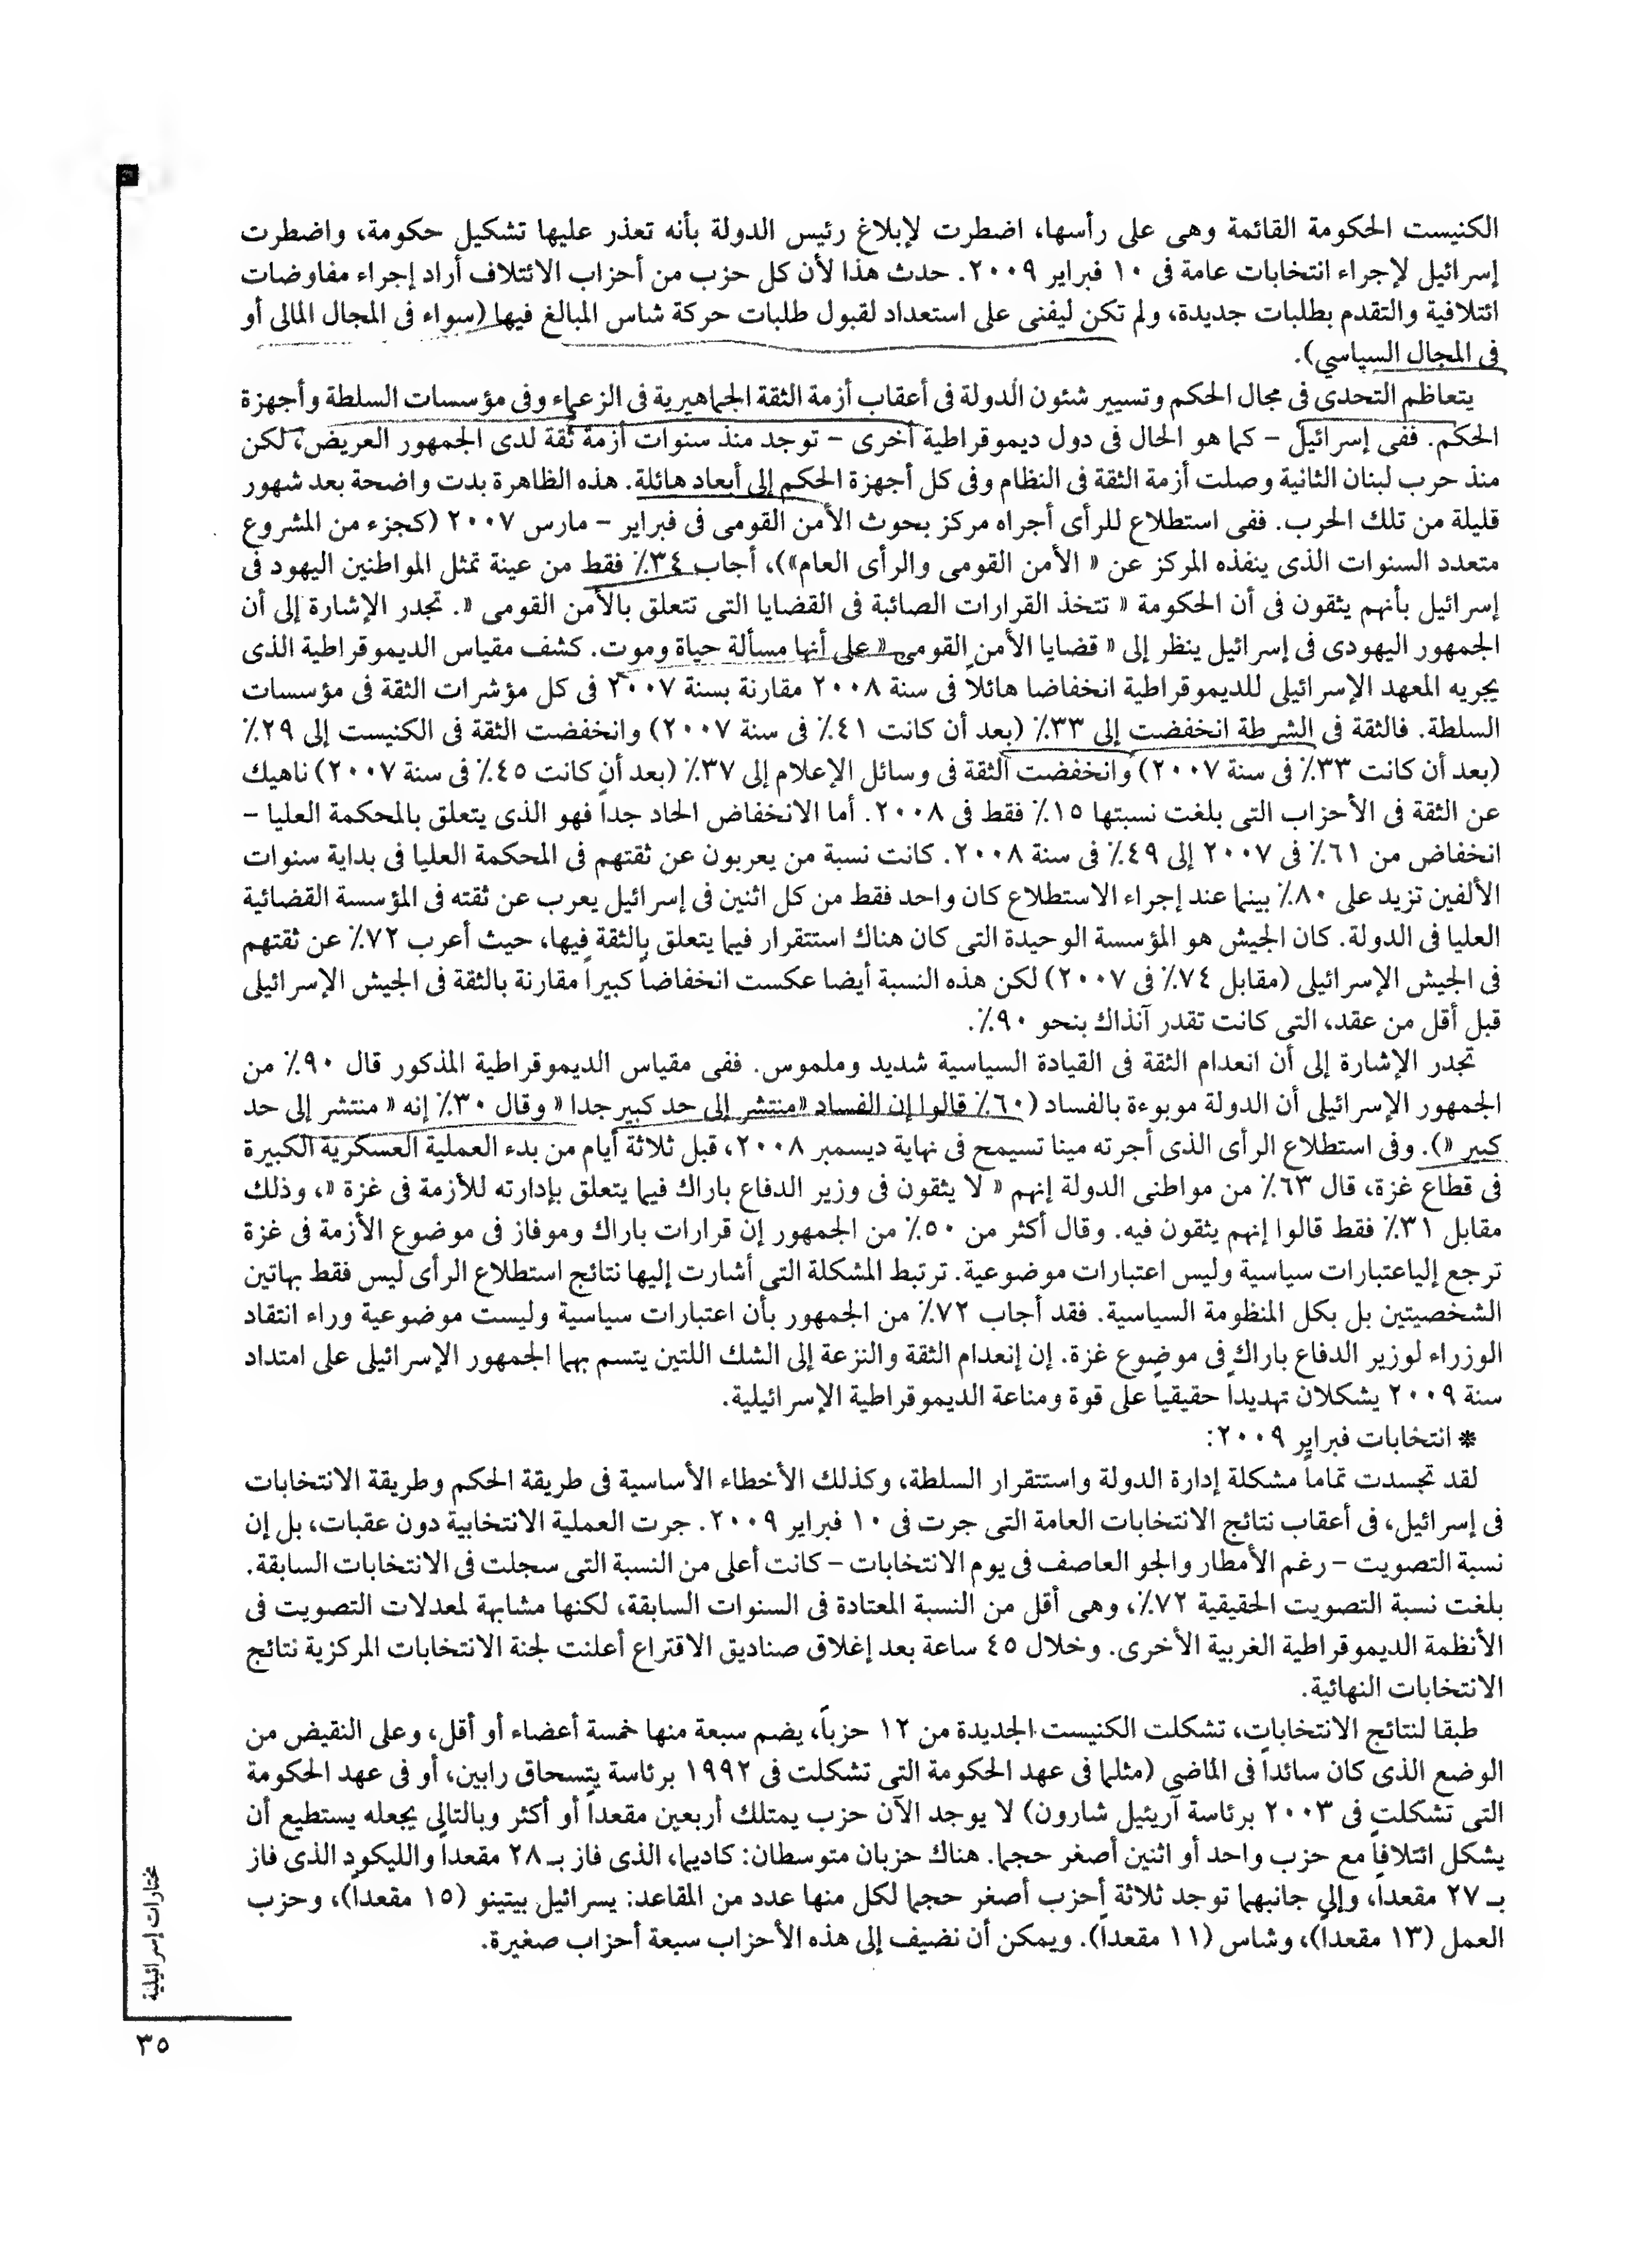 الكنيست الحكومة القائمة وهى على رأسها، اضطرت لإبلاغ رئيس الدولة بأنه تعذر عليها تشكيل حكومة، واضطرت
إسرائيل لإجراء انتخابات عامة فى ١٠ فبراير ٢٠٠٩. حدث هذا لأن كل حزب من أحزاب الائتلاف أراد إجراء مفاوضات
ائتلافية والتقدم بطلبات جديدة، ولم تكن ليفنى على استعداد لقبول طلبات حركة شاس المبالغ فيها (سواء فى المجال المالى أو
فى المجال السياسي).
يتعاظم التحدى فى مجال الحكم وتسيير شئون الدولة فى أعقاب أزمة الثقة الجماهيرية فى الزعماء وفى مؤسسات السلطة وأجهزة
الحكم. ففى إسرائيل - كما هو الحال فى دول ديموقراطية أخرى - توجد منذ سنوات أزمة ثقة لدى الجمهور العريض، لكن
منذ حرب لبنان الثانية وصلت أزمة الثقة فى النظام وفى كل أجهزة الحكم إلى أبعاد هائلة. هذه الظاهرة بدت واضحة بعد شهور
قليلة من تلك الحرب. ففى استطلاع للرأى أجراه مركز بحوث الأمن القومى فى فبراير - مارس ٢٠٠٧ (كجزء من المشروع
متعدد السنوات الذى ينفذه المركز عن « الأمن القومى والرأى العام»)، أجاب ٣٤٪ فقط من عينة تمثل المواطنين اليهود فى
إسرائيل بأنهم يثقون فى أن الحكومة « تتخذ القرارات الصائبة فى القضايا التى تتعلق بالأمن القومى «. تجدر الإشارة إلى أن
الجمهور اليهودى فى إسرائيل ينظر إلى « قضايا الأمن القومى« على أنها مسألة حياة وموت. كشف مقياس الديموقراطية الذى
يجريه المعهد الإسرائيلى للديموقراطية انخفاضا هائلاً فى سنة ٢٠٠٨ مقارنة بسنة ٢٠٠٧ فى كل مؤشرات الثقة فى مؤسسات
السلطة. فالثقة فى الشرطة انخفضت إلى ٣٣٪ (بعد أن كانت ٤١٪ فى سنة ٢٠٠٧) وانخفضت الثقة فى الكنيست إلى ٢٩٪
(بعد أن كانت ٣٣٪ فى سنة ٢٠٠٧) وانخفضت الثقة فى وسائل الإعلام إلى ٣٧٪ (بعد أن كانت ٤٥٪ فى سنة ٢٠٠٧) ناهيك
عن الثقة فى الأحزاب التى بلغت نسبتها ١٥٪ فقط فى ٢٠٠٨. أما الانخفاض الحاد جداً فهو الذى يتعلق بالمحكمة العليا -
انخفاض من ٦١٪ فى ٢٠٠٧ إلى ٤٩٪ فى سنة ٢٠٠٨. كانت نسبة من يعربون عن ثقتهم فى المحكمة العليا فى بداية سنوات
الألفين تزيد على ٨٠٪ بينما عند إجراء الاستطلاع كان واحد فقط من كل اثنين فى إسرائيل يعرب عن ثقته فى المؤسسة القضائية
العليا فى الدولة. كان الجيش هو المؤسسة الوحيدة التى كان هناك استتقرار فيما يتعلق بالثقة فيها، حيث أعرب ٧٢٪ عن ثقتهم
فى الجيش الإسرائيلى (مقابل ٧٤٪ فى ٢٠٠٧) لكن هذه النسبة أيضا عكست انخفاضاً كبيراً مقارنة بالثقة فى الجيش الإسرائيلى
قبل أقل من عقد، التى كانت تقدر آنذاك بنحو ٩٠٪.
تجدر الإشارة إلى أن انعدام الثقة فى القيادة السياسية شديد وملموس. ففى مقياس الديموقراطية المذكور قال ٩٠٪ من
الجمهور الإسرائيلى أن الدولة موبوءة بالفساد (٦٠٪ قالوا إن الفساد «منتشر إلى حد كبير جدا « وقال ٣٠٪ إنه « منتشر إلى حد
كبير «). وفى استطلاع الرأى الذى أجرته مينا تسيمح فى نهاية ديسمبر ٢٠٠٨، قبل ثلاثة أيام من بدء العملية العسكرية الكبيرة
فى قطاع غزة، قال ٦٣٪ من مواطنى الدولة إنهم « لا يثقون فى وزير الدفاع باراك فيما يتعلق بإدارته للأزمة فى غزة «، وذلك
مقابل ٣١٪ فقط قالوا إنهم يثقون فيه. وقال أكثر من ٥٠٪ من الجمهور إن قرارات باراك وموفاز فى موضوع الأزمة فى غزة
ترجع إلياعتبارات سياسية وليس اعتبارات موضوعية. ترتبط المشكلة التى أشارت إليها نتائج استطلاع الرأى ليس فقط بهاتين
الشخصيتين بل بكل المنظومة السياسية. فقد أجاب ٧٢٪ من الجمهور بأن اعتبارات سياسية وليست موضوعية وراء انتقاد
الوزراء لوزير الدفاع باراك فى موضوع غزة. إن إنعدام الثقة والنزعة إلى الشك اللتين يتسم بهما الجمهور الإسرائيلى على امتداد
سنة ٢٠٠٩ يشكلان تهديداً حقيقياً على قوة ومناعة الديموقراطية الإسرائيلية.
* انتخابات فبراير ٢٠٠٩:
لقد تجسدت تماماً مشكلة إدارة الدولة واستتقرار السلطة، وكذلك الأخطاء الأساسية فى طريقة الحكم وطريقة الانتخابات
فى إسرائيل، فى أعقاب نتائج الانتخابات العامة التى جرت فى ١٠ فبراير ٢٠٠٩. جرت العملية الانتخابية دون عقبات، بل إن
نسبة التصويت - رغم الأمطار والجو العاصف فى يوم الانتخابات - كانت أعلى من النسبة التى سجلت فى الانتخابات السابقة.
بلغت نسبة التصويت الحقيقية ٧٢٪، وهى أقل من النسبة المعتادة فى السنوات السابقة، لكنها مشابهة لمعدلات التصويت فى
الأنظمة الديموقراطية الغربية الأخرى. وخلال ٤٥ ساعة بعد إغلاق صناديق الاقتراع أعلنت لجنة الانتخابات المركزية نتائج
الانتخابات النهائية.
طبقا لنتائج الانتخابات، تشكلت الكنيست الجديدة من ١٢ حزباً، يضم سبعة منها خمسة أعضاء أو أقل، وعلى النقيض من
الوضع الذى كان سائداً فى الماضى (مثلما فى عهد الحكومة التى تشكلت فى ١٩٩٢ برئاسة يتسحاق رابين، أو فى عهد الحكومة
التى تشكلت فى ٢٠٠٣ برئاسة آريئيل شارون) لا يوجد الآن حزب يمتلك أربعين مقعداً أو أكثر وبالتالى يجعله يستطيع أن
يشكل ائتلافاً مع حزب واحد أو اثنين أصغر حجما. هناك حزبان متوسطان: كاديما، الذى فاز بـ ٢٨ مقعداً والليكود الذى فاز
بـ ٢٧ مقعداً، وإلى جانبهما توجد ثلاثة أحزب أصغر حجما لكل منها عدد من المقاعد: يسرائيل بيتينو (١٥ مقعداً)، وحزب
العمل (١٣ مقعداً)، وشاس (١١ مقعداً). ويمكن أن نضيف إلى هذه الأحزاب سبعة أحزاب صغيرة.
مختارات إسرائيلية
٣٥